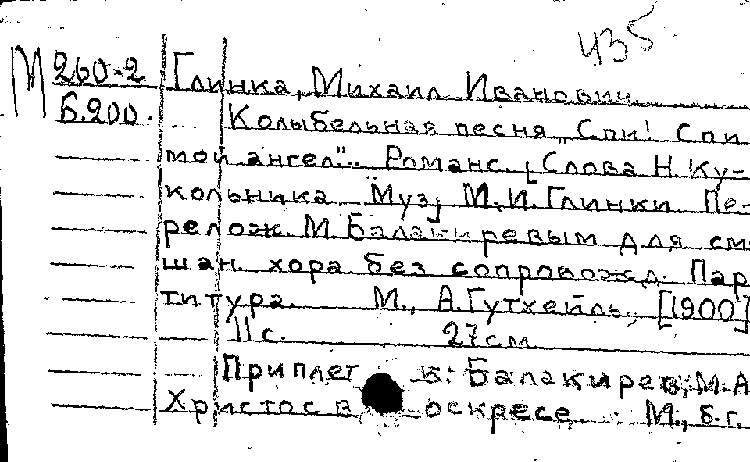 435
М 260-2 Глинка, Михаил Иванович
Б.200. Колыбельная песня „Спи! Спи
мой ангел". Романс. [Слова Н. Ку-
кольника. Муз] М.И. Глинки. Пе-
релож. М. Балакиревым для сме
шан. хора без сопровожд. Пар
титура. М., А. Гутхейль, [1900]
11 с. 27 см
Приплет к: Балакирев, М.А
Христос воскресе. М., б.г.